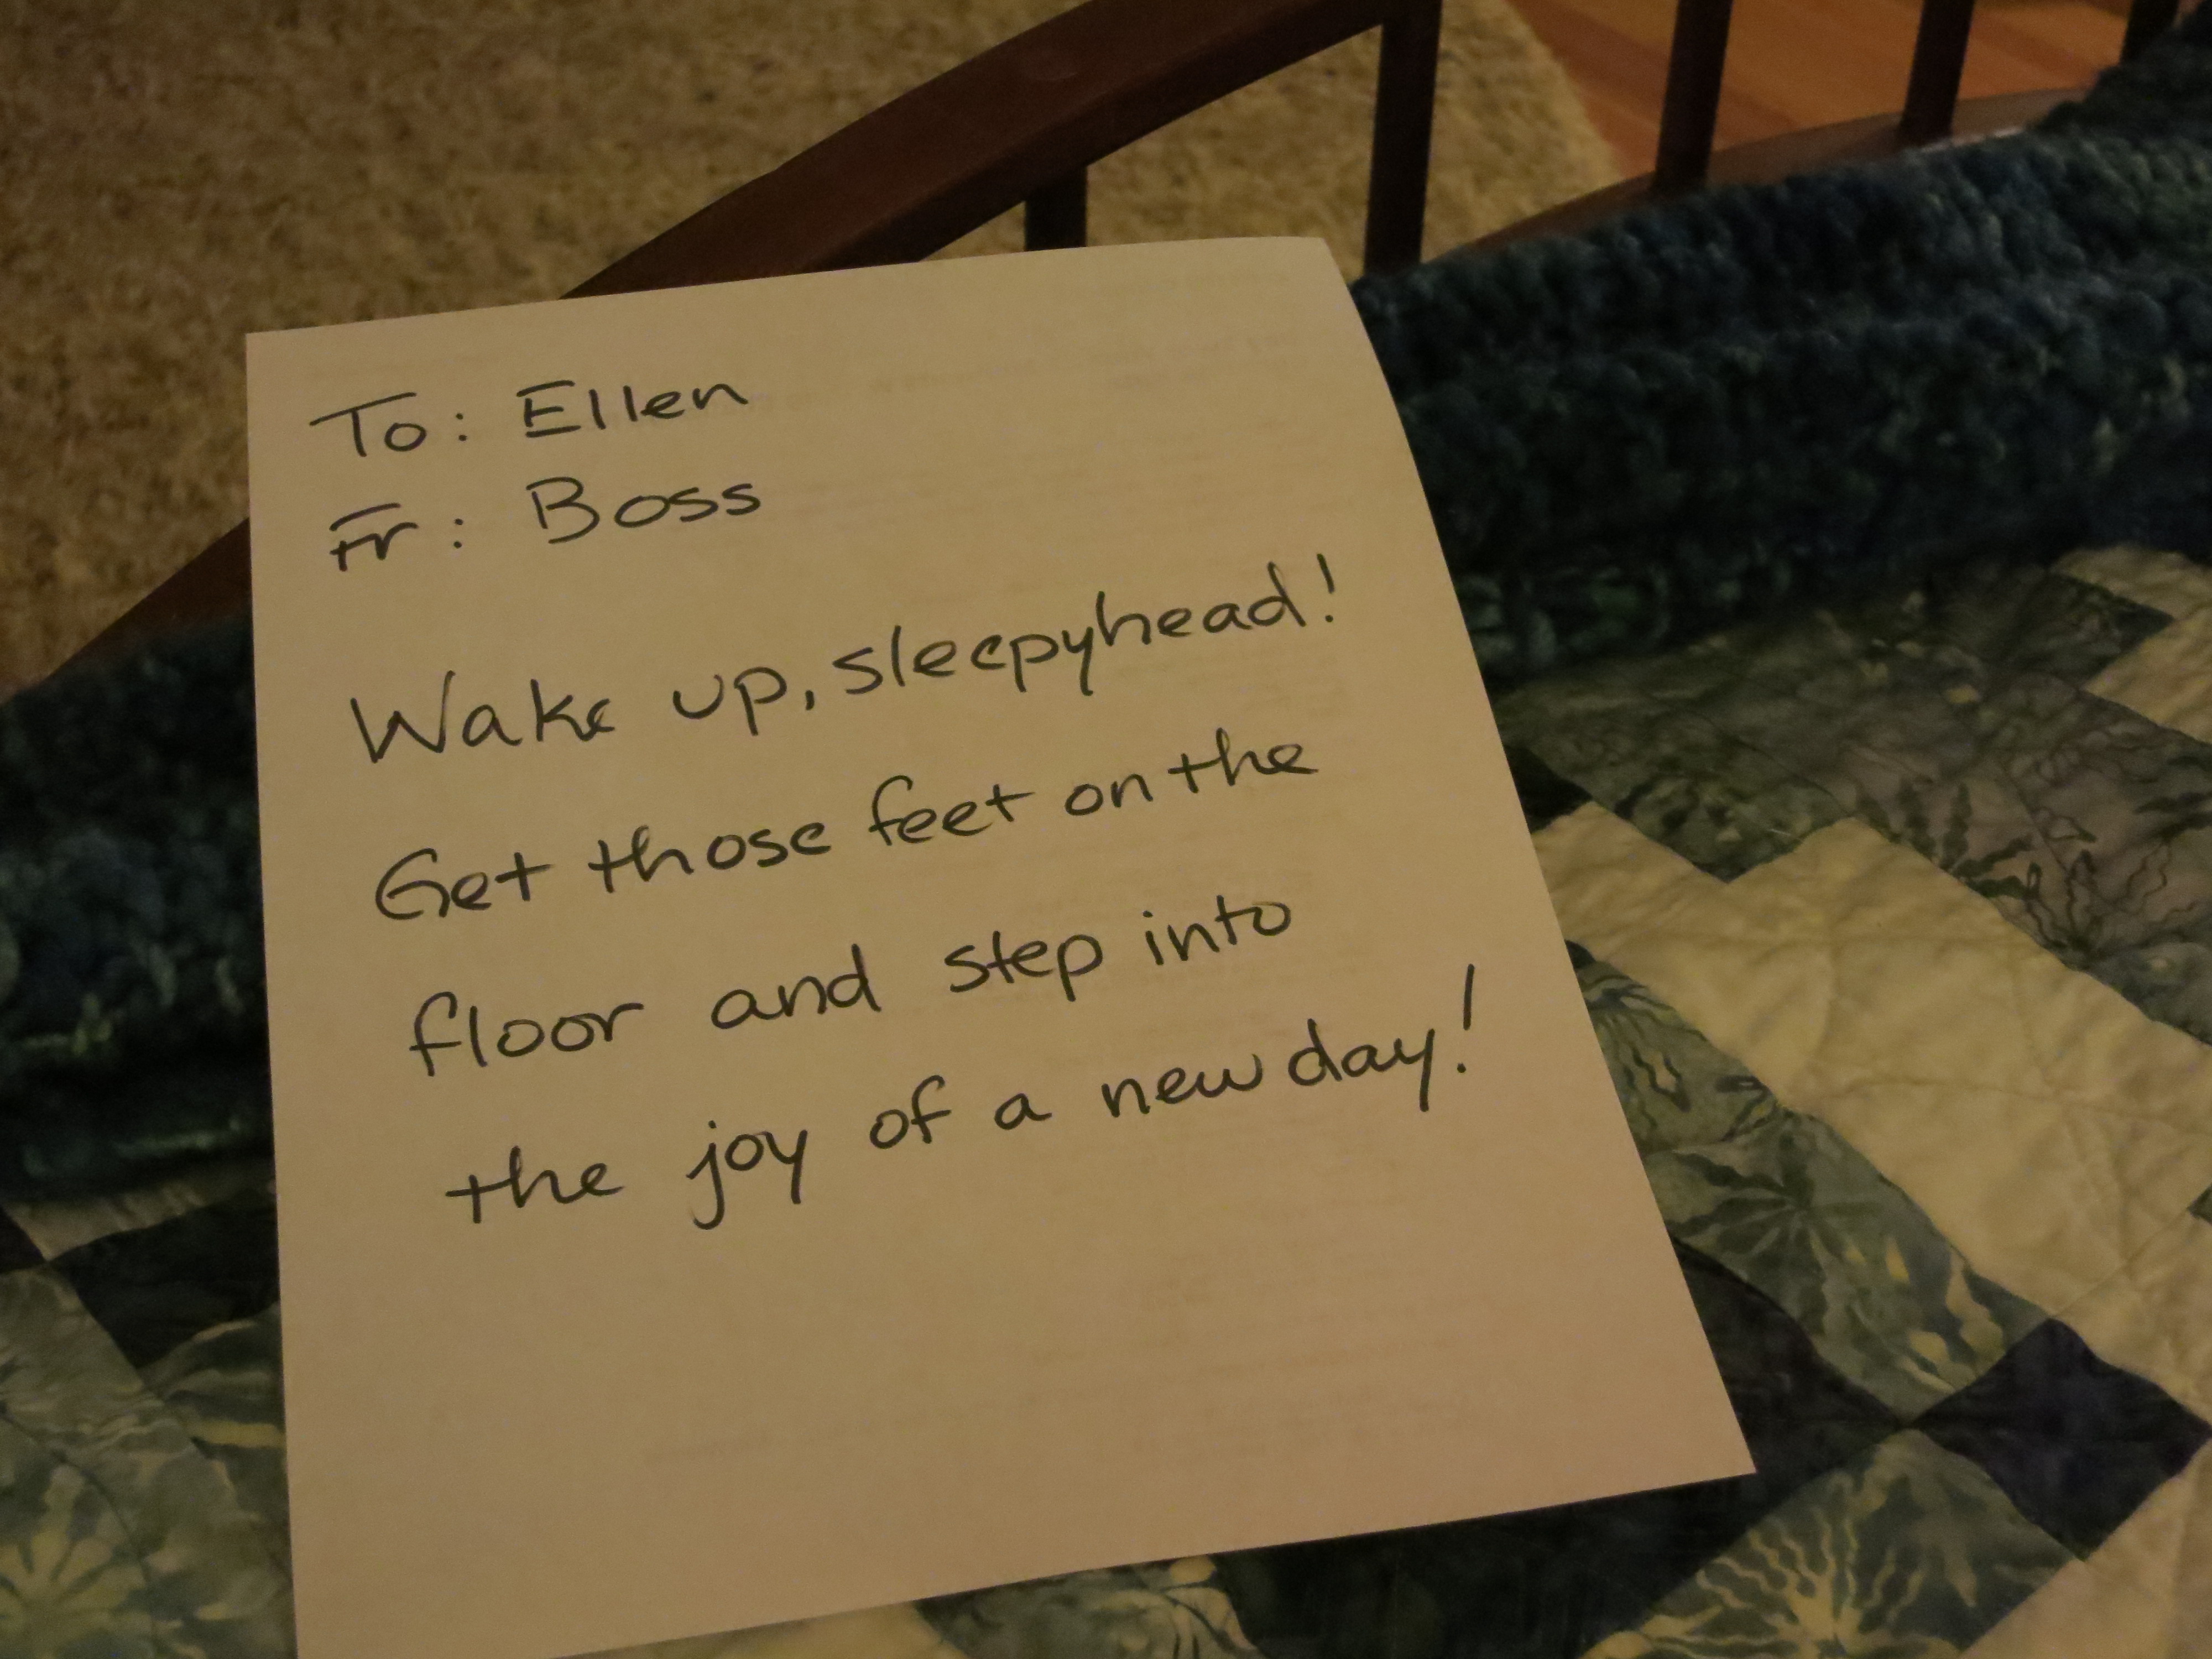 To: Ellen
Fr: Boss
Wake up, sleepyhead!
Get those feet on the
floor and step into
the joy of a new day!